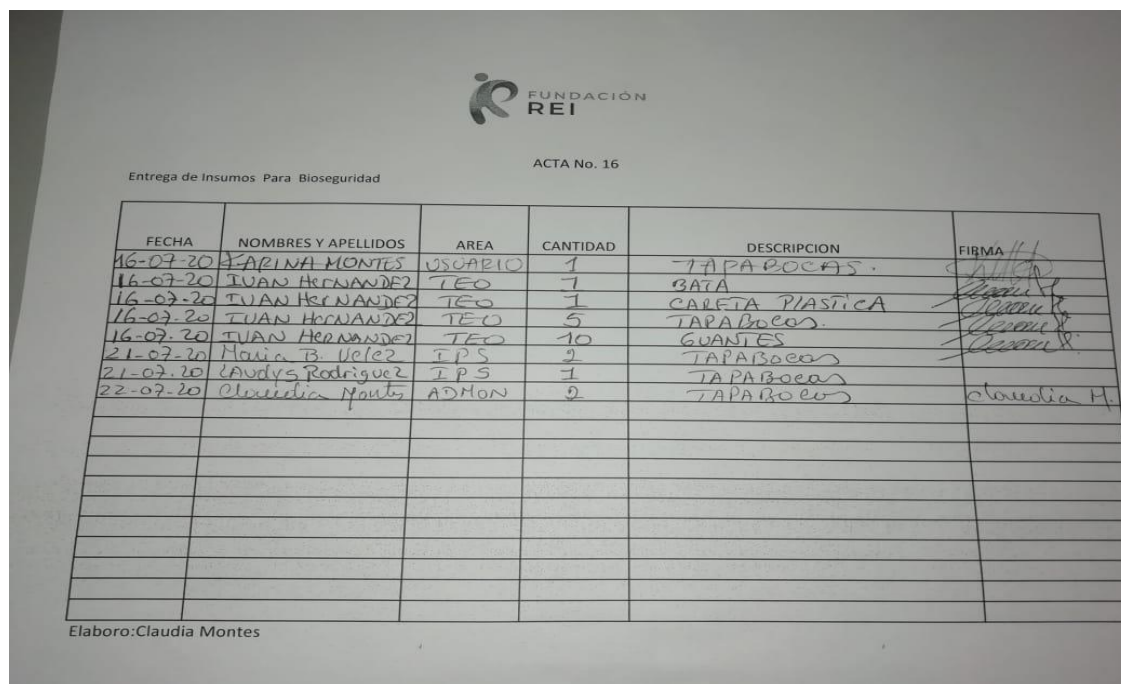 FUNDACIÓN
REI
ACTA No. 16
Entrega de Insumos Para Bioseguridad
FECHA NOMBRES Y APELLIDOS AREA CANTIDAD DESCRIPCION FIRMA
16-07-20 KARINA MONTES USUARIO 1 TAPABOCAS.
16-07-20 IVAN HERNANDEZ TEO 1 BATA
16-07-20 IVAN HERNANDEZ TEO 1 CARETA PLASTICA
16-07.20 IVAN HERNANDEZ TEO 5 TAPABOCAS.
16-07.20 IVAN HERNANDEZ TEO 10 GUANTES
21-07-20 Maria B. Velez IPS 2 TAPABOCAS
21-07.20 LAUDYS Rodriguez IPS 1 TAPABOCAS
22-07-20 Claudia Montes ADMON 2 TAPABOCAS Claudia M.
Elaboro:Claudia Montes